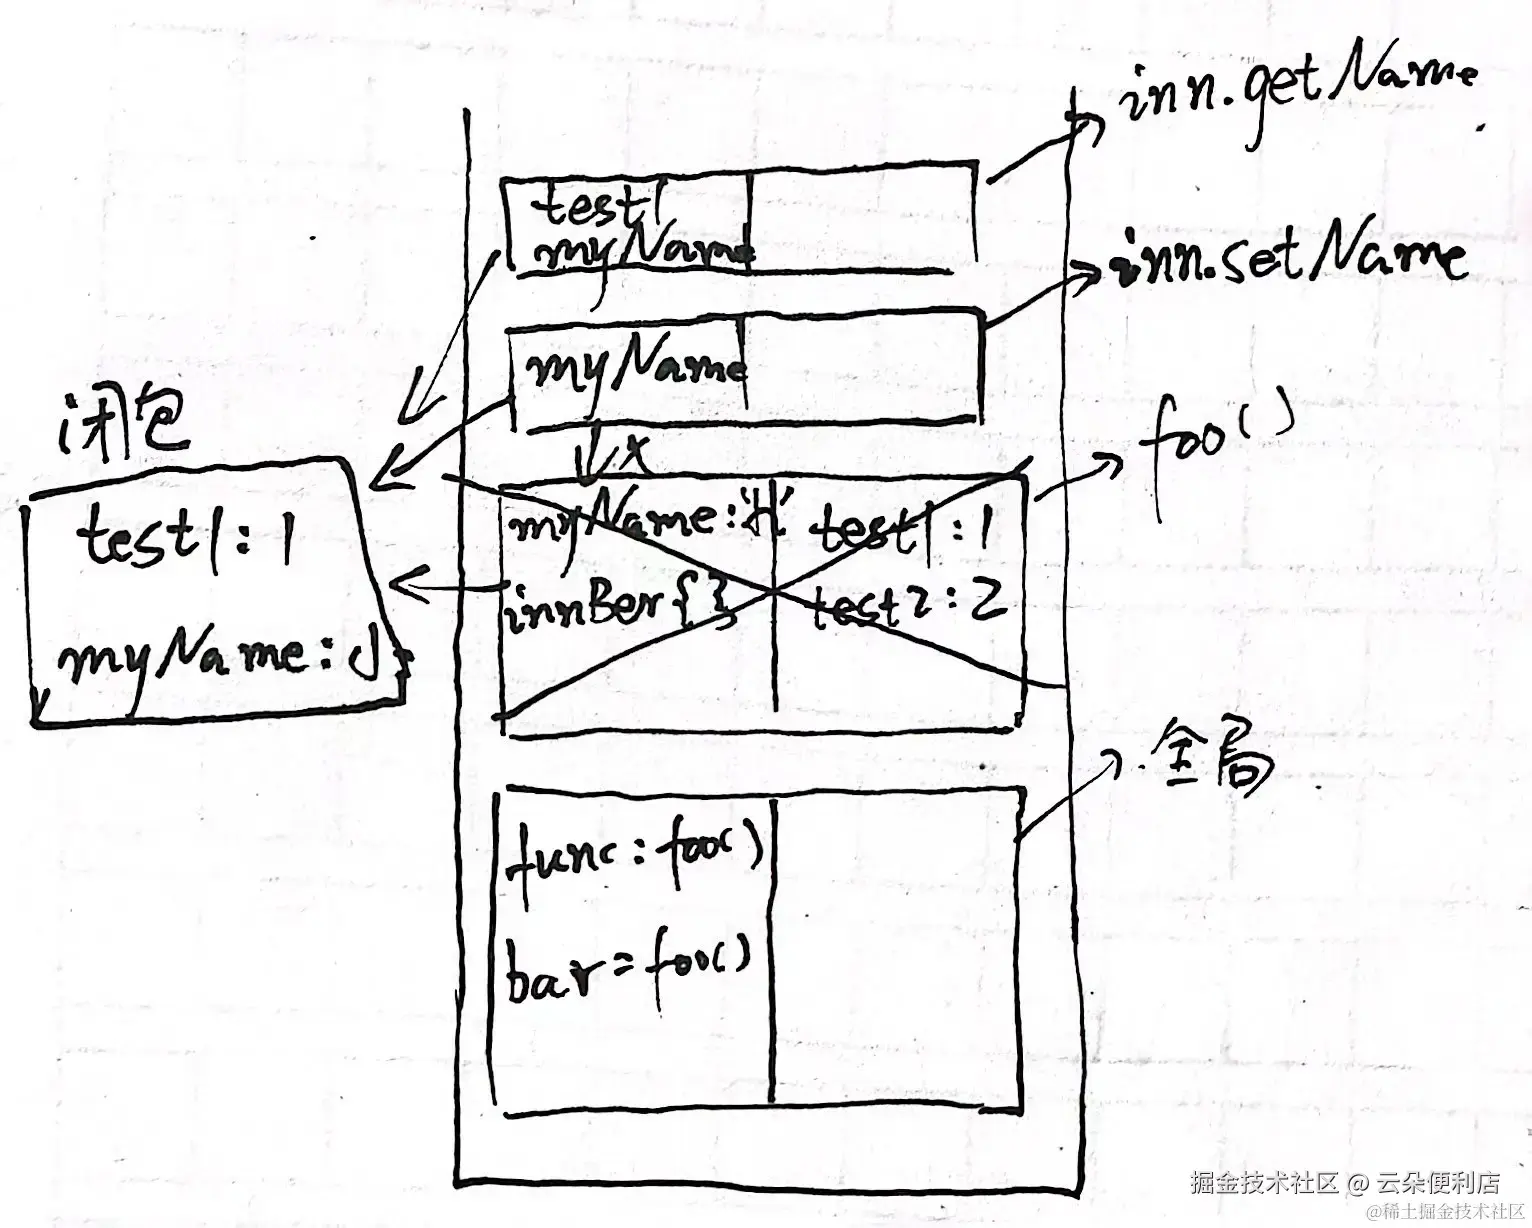 inn.getName
test1
myName
inn.setName
myName
闭包
foo()
x
myName:'H' test1:1
test1:1
innBer{} test2:2
myName:J
全局
func:foo()
bar=foo()
掘金技术社区 @ 云朵便利店
@稀土掘金技术社区